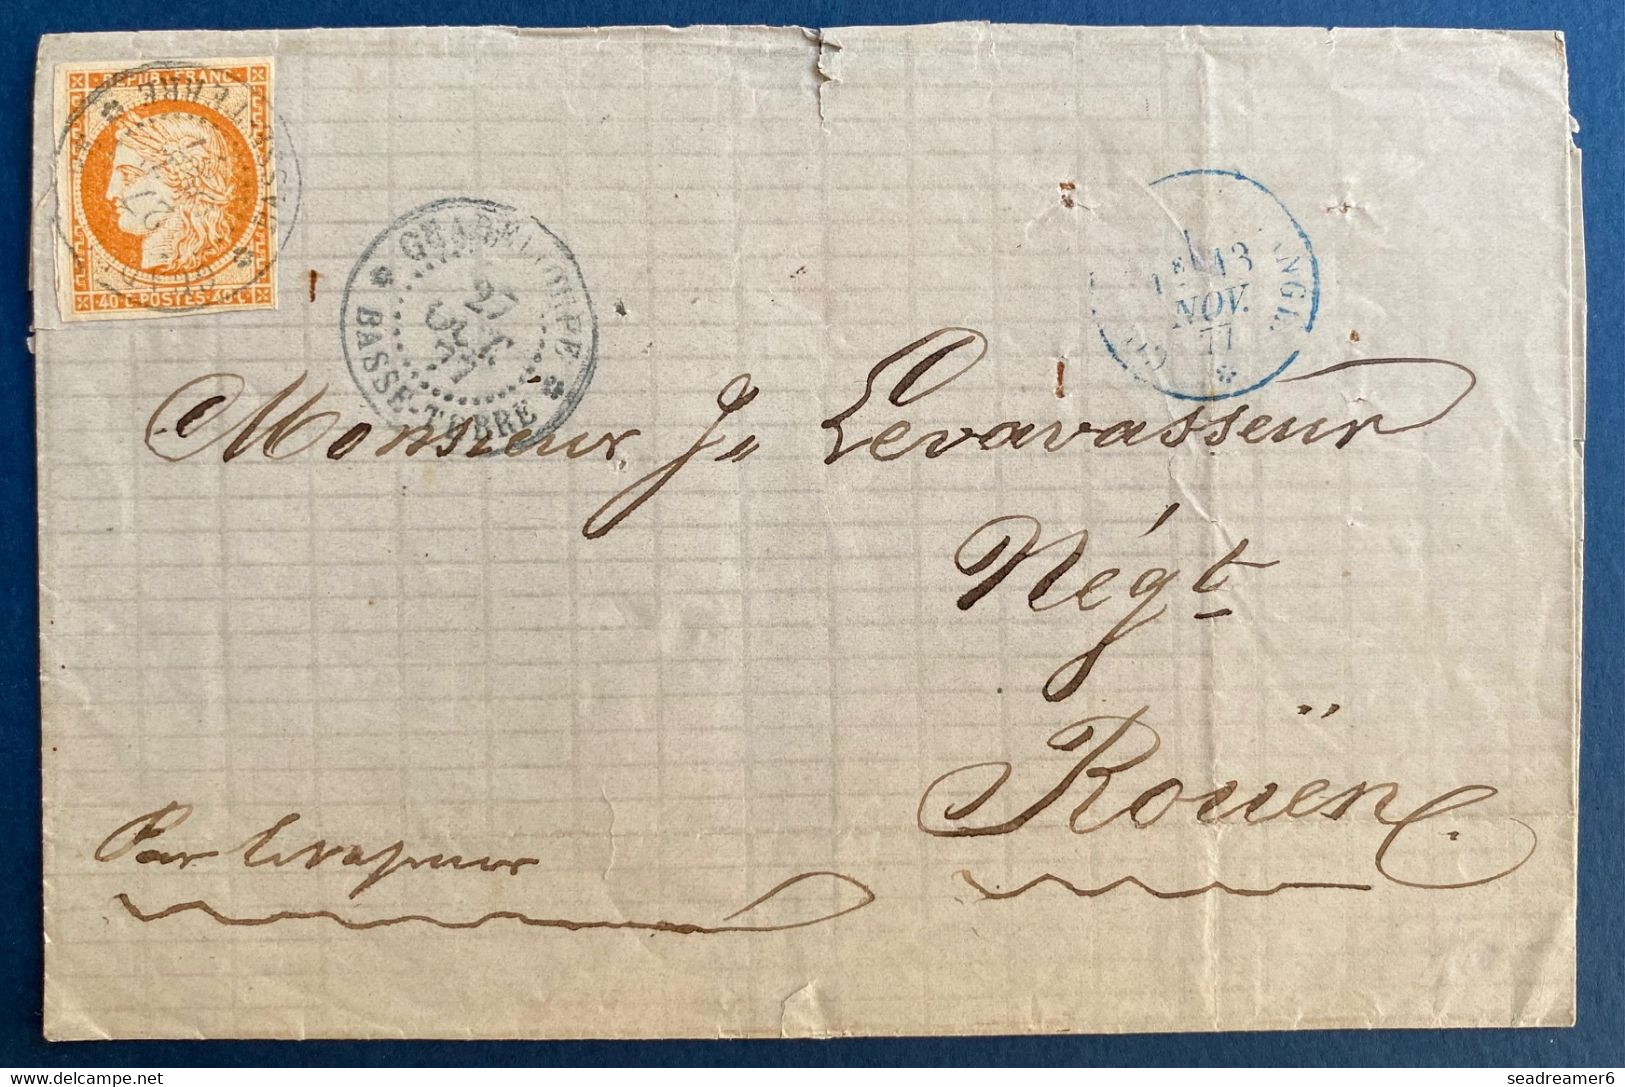 REPUB·FRANC·
40·C·POSTES·40·C
GUADELOUPE
27
OCT
77
BASSE-TERRE
13
NOV.
77
Monsieur J" Levavasseur
Négt
Rouën
Par Vapeur
www.delcampe.net
seadreamer6